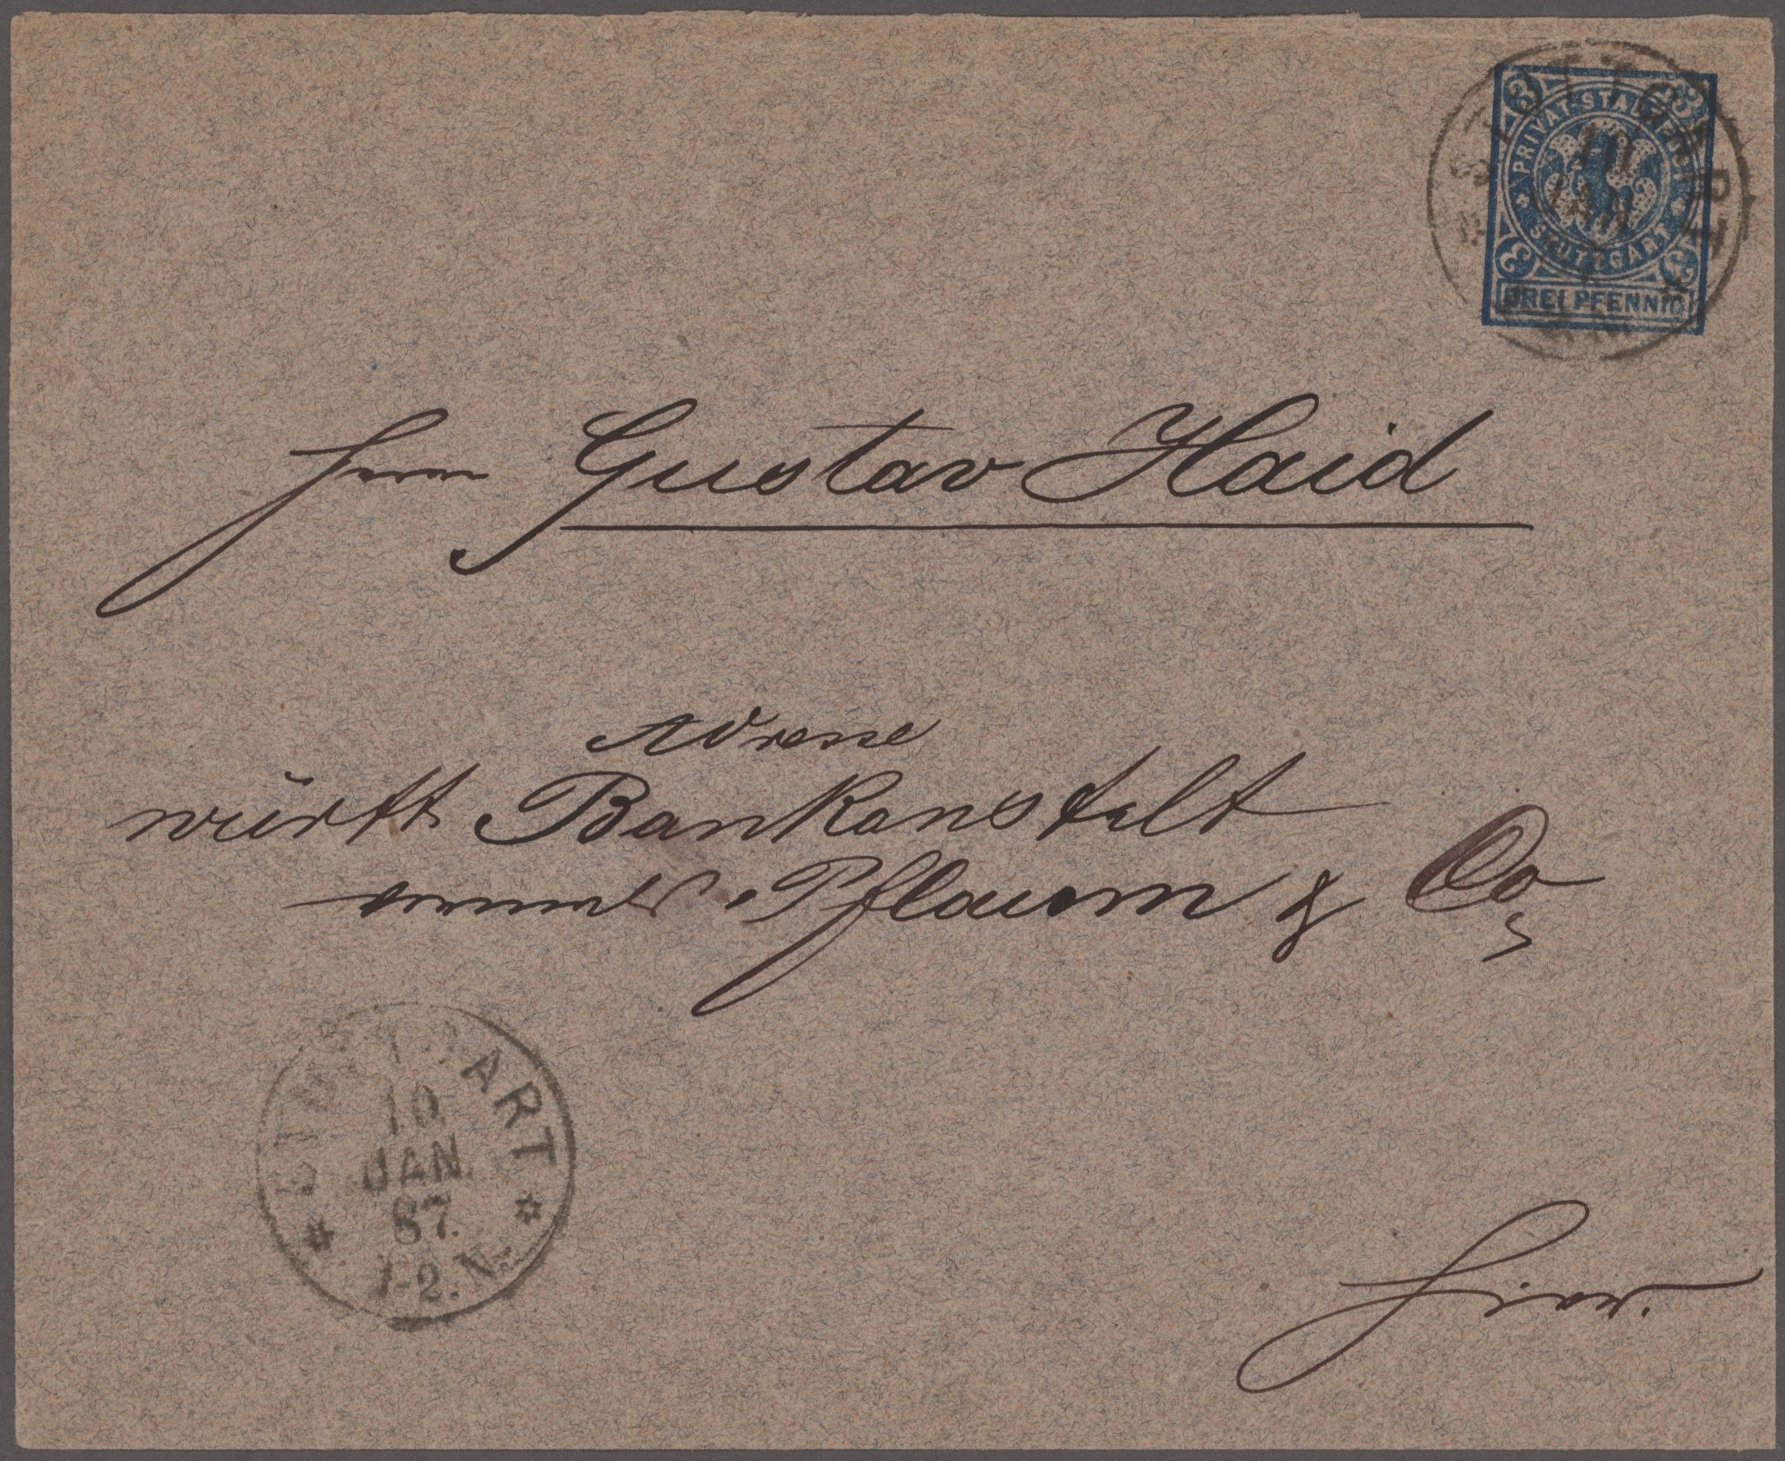 3 3
PRIVAT-STADTPOST
STUTTGART
3 3
DREI PFENNIG
STUTTGART
10
JAN
Herrn Gustav Haid
Adresse
württ. Bankanstalt
vormals Pflaum & Co
STUTTGART
10.
JAN.
87.
1-2. N.
Hier.